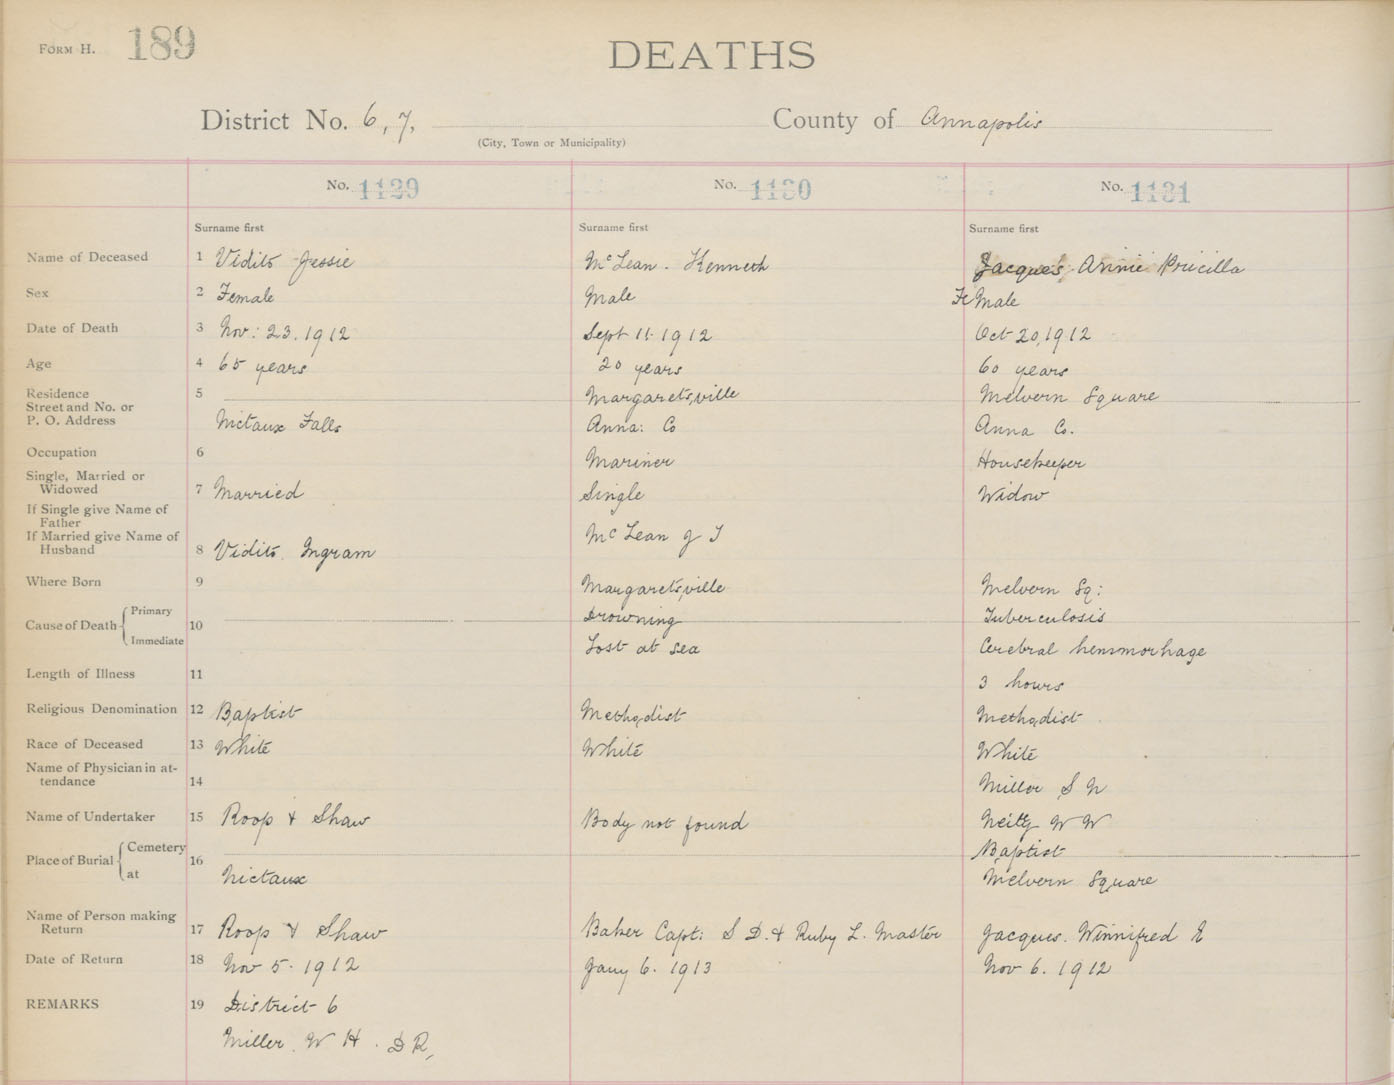 FORM H. 189
DEATHS
District No. 6, 7, County of Annapolis
(City, Town or Municipality)
No. 1129 No. 1130 No. 1131
Surname first Surname first Surname first
Name of Deceased 1 Vidito Jessie McLean. Kenneth Jacques Annie Pricilla
Sex 2 Female Male FeMale
Date of Death 3 Nov: 23. 1912 Sept 11. 1912 Oct 20, 1912
Age 4 65 years 20 years 60 years
Residence 5 Margaretsville Melvern Square
Street and No. or
P. O. Address Nictaux Falls Anna: Co Anna Co.
Occupation 6 Mariner Housekeeper
Single, Married or
Widowed 7 Married Single Widow
If Single give Name of
Father
If Married give Name of McLean J
Husband 8 Vidito. Ingram
Where Born 9 Margaretsville Melvern Sq:
Primary Drowning Tuberculosis
Cause of Death 10
Immediate Lost at sea Cerebral hemmorhage
Length of Illness 11 3 hours
Religious Denomination 12 Baptist Methodist Methodist
Race of Deceased 13 White White White
Name of Physician in at-
tendance 14 Miller S N
Name of Undertaker 15 Roop & Shaw Body not found W W
Cemetery Baptist
Place of Burial 16
at Nictaux Melvern Square
Name of Person making
Return 17 Roop & Shaw Baker Capt: S D. & Ruby L. Master Jacques. Winnifred E
Date of Return 18 Nov 5. 1912 Jany 6. 1913 Nov 6. 1912
REMARKS 19 District 6
Miller. W H. D R,